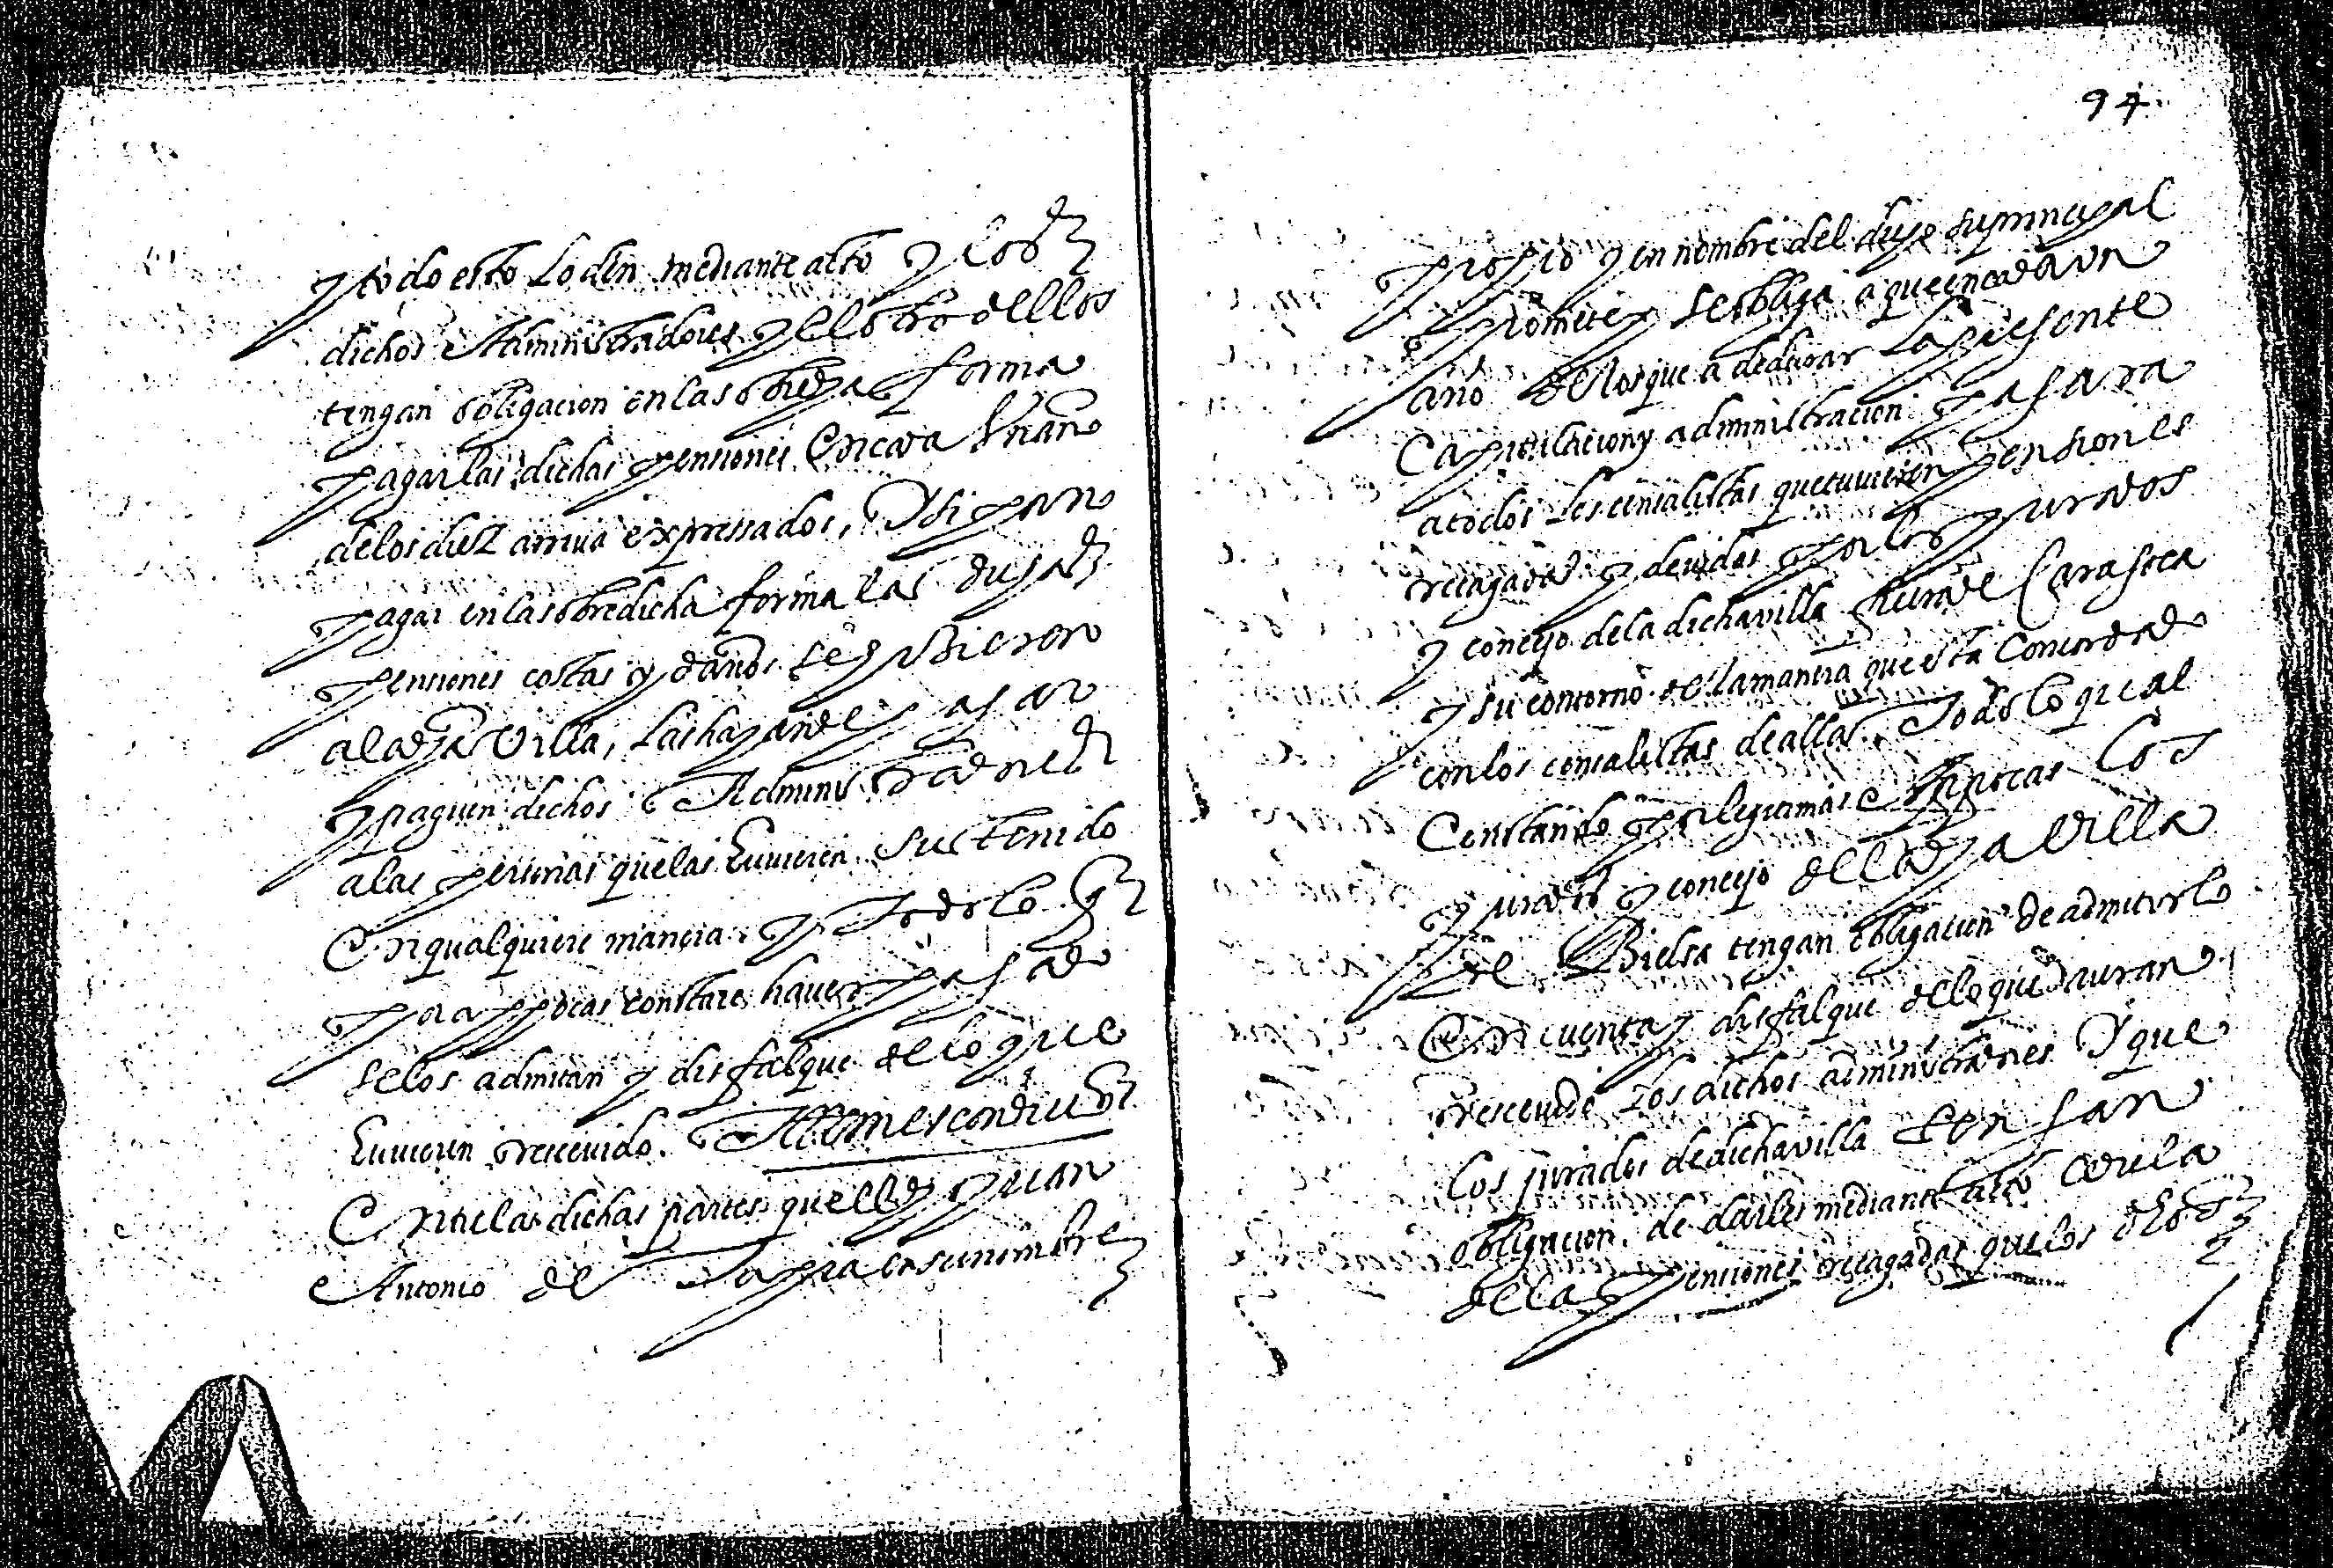 y todo esto lo den mediante acto y los
dichos Administradores y el otro dellos
tengan obligacion en la sobredha forma
pagar las dichas pensiones en cada un año
de los diez arriua expressados, y si por no
pagar en la sobredicha forma las dichas
pensiones costas y daños se
a la dha villa, las hayan de pagar
y paguen dichos Administradores
a las personas que las huuieren sustenido
en qualquiere manera. y todo lo q
por apocas constare hauer pagado
se los admitan y disfalque de lo que
huuieren receuido. Attem es condicion
entre las dichas partes que el dho Juan
Antonio de Tapia en su nombre
94
propio y en nombre del dicho su principal
promete y se obliga a que en cada un
año de los que a de durar la presente
Capitulacion y administracion pagara
a todos los censalistas que tuuieren pensiones
recagadas y deuidas por los jurados
y concejo de la dicha villa
y su contorno de la manera que esta concordado
con los censalistas de alla. Todo lo qual
Constando por legitimas Appocas los
jurados y concejo de la dha villa
de Bielsa tengan obligacion de admitirlo
En cuenta y disfalque de lo que dauran
resceuido los dichos administradores y que
los jurados de dicha villa
obligacion de darles mediante acto cedula
de las pensiones recagadas que los